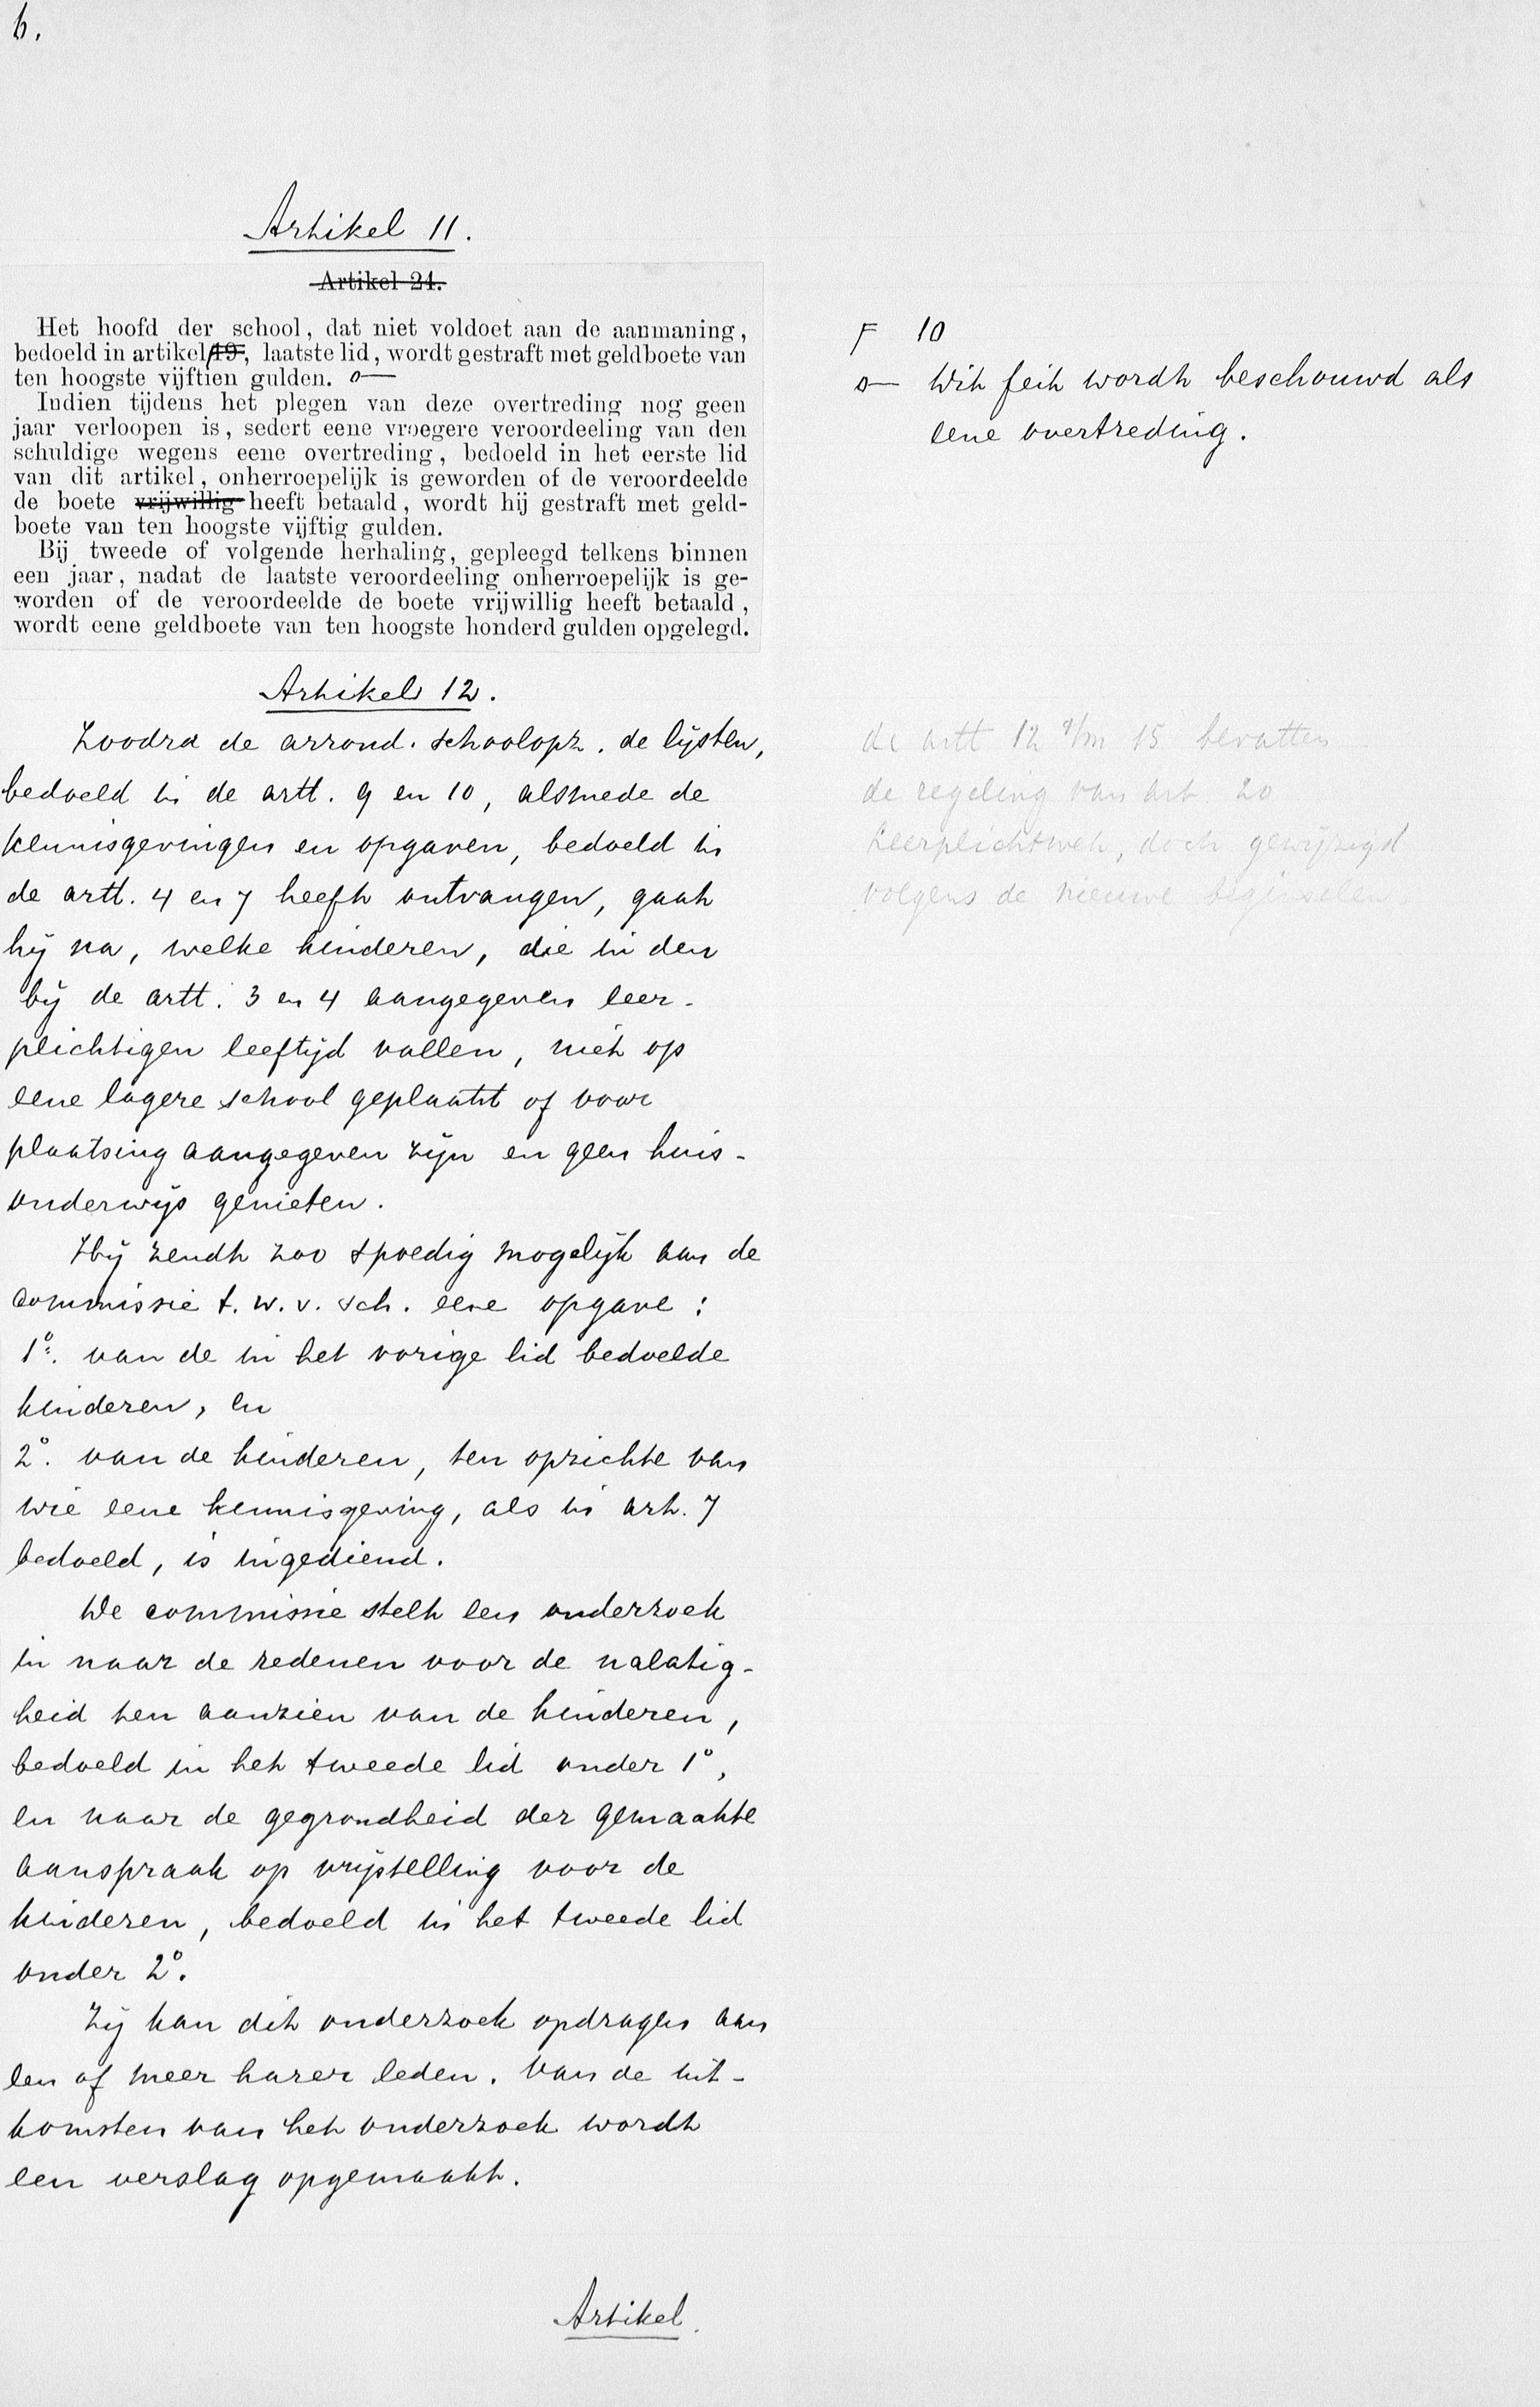 6.
Artikel 11.
Artikel 24.
Het hoofd der school, dat niet voldoet aan de aanmaning,
bedoeld in artikel 19, laatste lid, wordt gestraft met geldboete van
ten hoogste vijftien gulden.
Indien tijdens het plegen van deze overtreding nog geen
jaar verloopen is, sedert eene vroegere veroordeeling van den
schuldige wegens eene overtreding, bedoeld in het eerste lid
van dit artikel, onherroepelijk is geworden of de veroordeelde
de boete vrijwillig heeft betaald, wordt hij gestraft met geld-
boete van ten hoogste vijftig gulden.
Bij tweede of volgende herhaling, gepleegd telkens binnen
een jaar, nadat de laatste veroordeeling onherroepelijk is ge-
worden of de veroordeelde de boete vrijwillig heeft betaald,
wordt eene geldboete van ten hoogste honderd gulden opgelegd.
Artikel 12.
Zoodra de arrond. schoolopz. de lijsten,
bedoeld in de artt. 9 en 10, alsmede de
kennisgevingen en opgaven, bedoeld in
de artt. 4 en 7 heeft ontvangen, gaat
hij na, welke kinderen, die in den
bij de artt. 3 en 4 aangegeven leer-
plichtigen leeftijd vallen, niet op
eene lagere school geplaatst of voor
plaatsing aangegeven zijn en geen huis-
onderwijs genieten.
Hij zendt zoo spoedig mogelijk aan de
commissie t. w. v. sch. eene opgave:
1º. van de in het vorige lid bedoelde
kinderen, en
2º. van de kinderen, ten opzichte van
wie eene kennisgeving, als in art. 7
bedoeld, is ingediend.
De commissie stelt een onderzoek
in naar de redenen voor de nalatig-
heid ten aanzien van de kinderen,
bedoeld in het tweede lid onder 1º,
en naar de gegrondheid der gemaakte
aanspraak op vrijstelling voor de
kinderen, bedoeld in het tweede lid
onder 2º.
Zij kan dit onderzoek opdragen aan
een of meer harer leden. Van de uit-
komsten van het onderzoek wordt
een verslag opgemaakt.
Artikel
F 10
o— Dit feit wordt beschouwd als
eene overtreding.
de artt 12 t/m 15 bevatten
de regeling van art. 20
Leerplichtwet, doch gewijzigd
volgens de nieuwe beginselen.